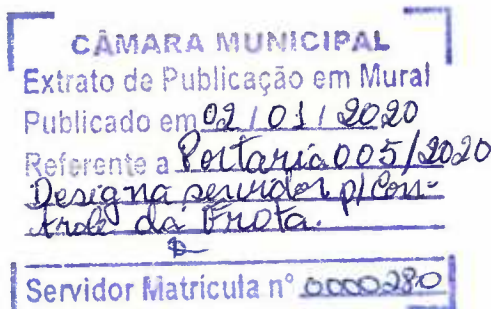 CÂMARA MUNICIPAL
Extrato de Publicação em Mural
Publicado em 02/01/2020
Referente a Portaria 005/2020
Designa servidor p/ Con-
trole da Frota.
Servidor Matrícula nº 0000280